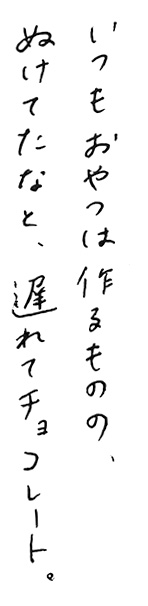 いつもおやつは作るものの、
ぬけてたなと、遅れてチョコレート。